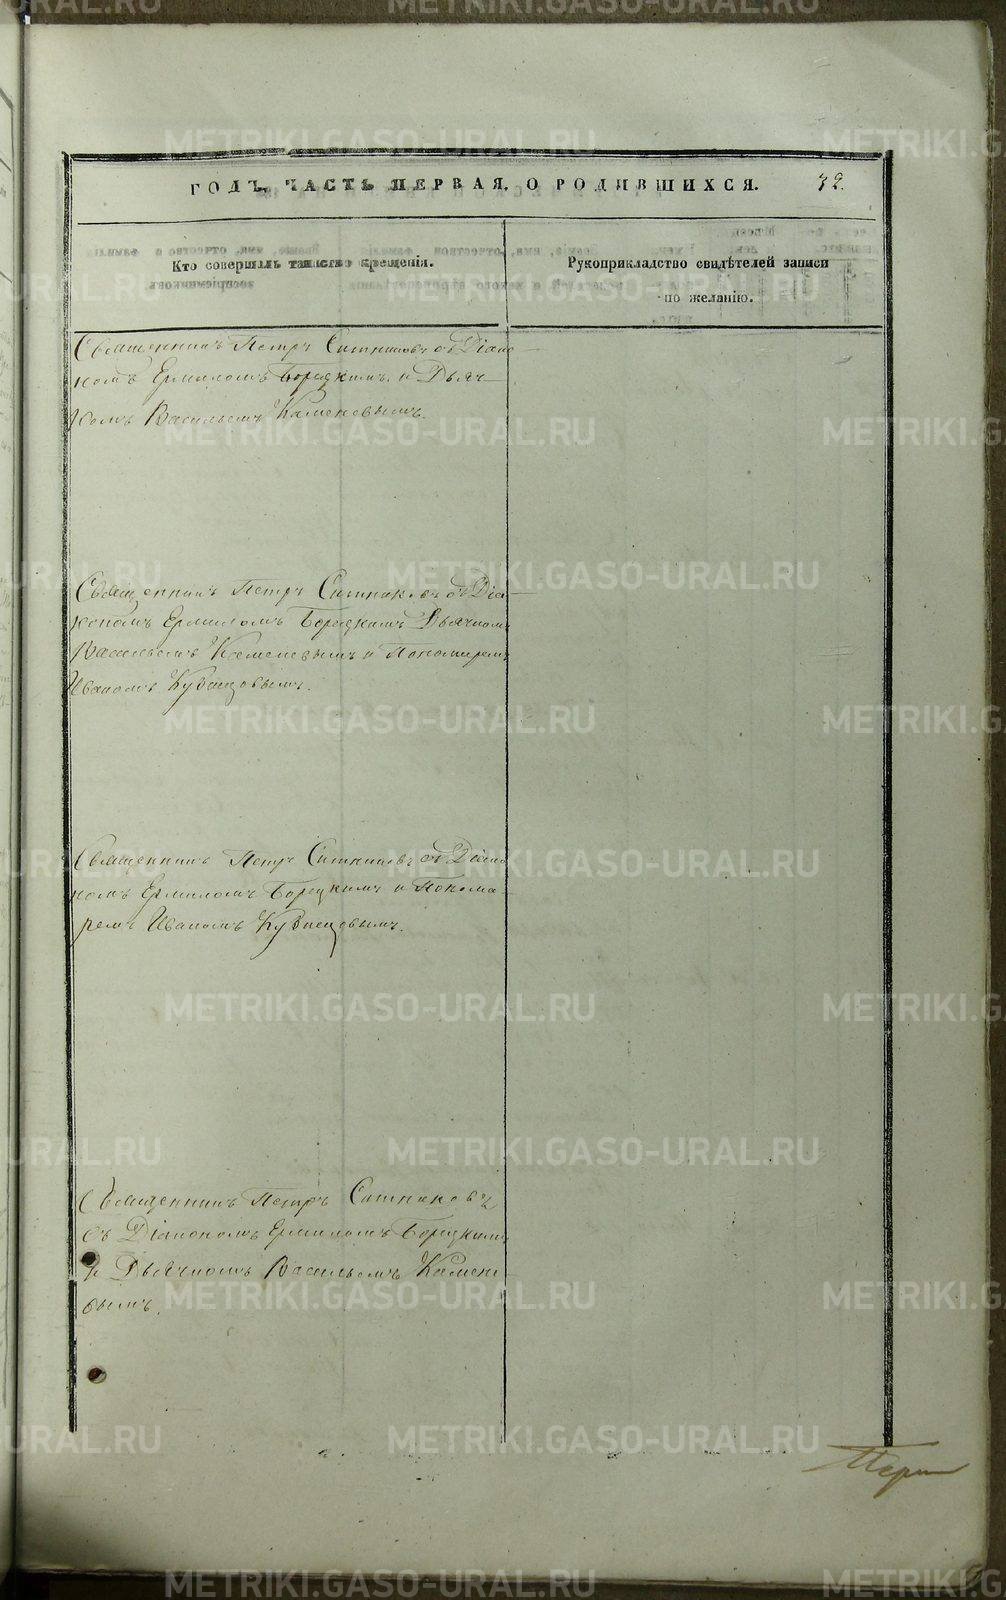 ГОДЪ, ЧАСТЬ ПЕРВАЯ, О РОДИВШИХСЯ. 32.
Кто совершалъ таинство крещенія.
Рукоприкладство свидѣтелей записи
по желанію.
Священникъ Петръ Ситниковъ съ Діако
номъ Ермиломъ Борецкимъ и Дьяч
комъ Васильемъ Каменевымъ.
Священникъ Петръ Ситниковъ съ Діа
кономъ Ермиломъ Борецкимъ Дьячкомъ
Васильемъ Каменевымъ и Пономаремъ
Иваномъ Кузнецовымъ.
Священникъ Петръ Ситниковъ съ Діако
номъ Ермиломъ Борецкимъ и Понома
ремъ Иваномъ Кузнецовымъ.
Священникъ Петръ Ситниковъ
съ Діакономъ Ермиломъ Борецкимъ
и Дьячкомъ Васильемъ Камене
вымъ.
METRIKI.GASO-URAL.RU